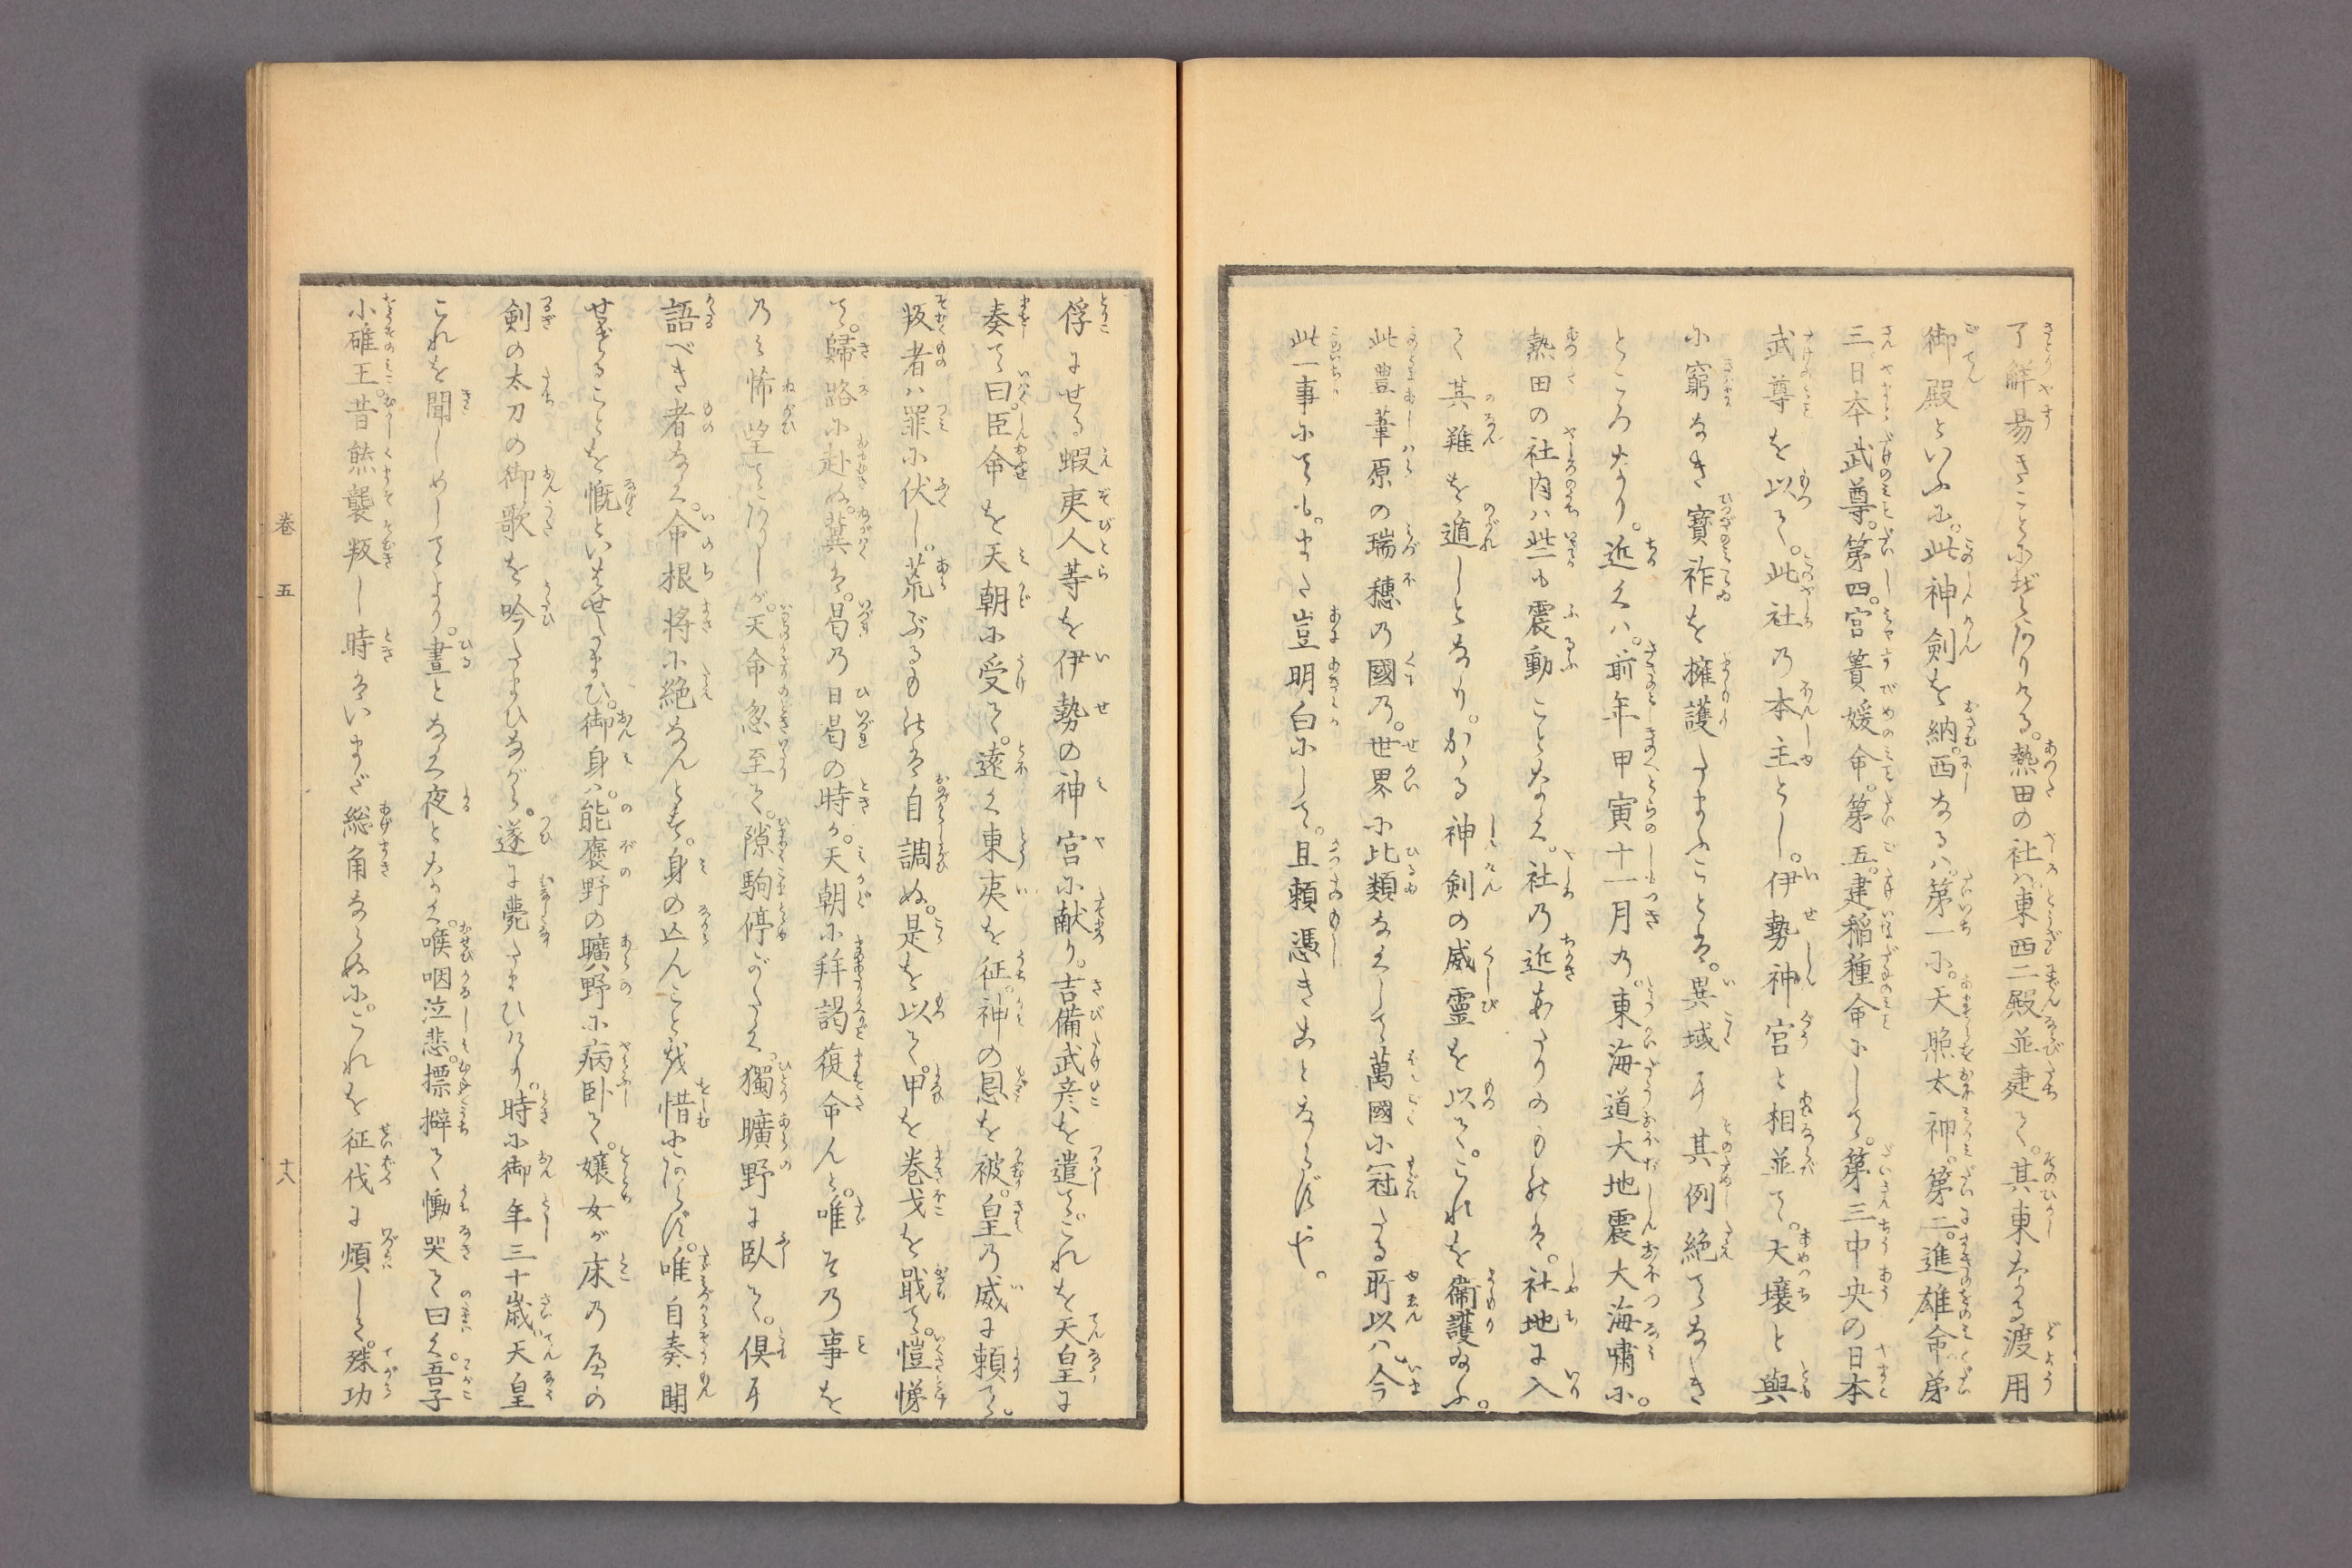 了解易きことにぞありける。熱田の社ハ東西二殿並建て。其東なる渡用
御殿といふに。此神剣を納。西なるハ。第一に。天照太神。第二。進雄命。第
三日本武尊。第四。宮簀媛命。第五。建稲種命にして。第三中央の日本
武尊を以て。此社乃本主とし。伊勢神宮と相並て。天壌と與
に窮なき寳祚を擁護たまふことは。異域に其例絶てなき
ところなり。近くハ。前年甲寅十一月乃。東海道大地震大海嘯に。
熱田の社内ハ些も震動ことなく。社乃近きあたりのものは。社地に入
て其難を遁しとなり。かゝる神剣の威霊を以て。これを衛護ゐふ。
此豊葦原の瑞穂乃國乃。世界に比類なくして萬國に冠たる所以ハ今
此一事にても。また豈明白にして。且頼憑きことならずや。
俘にせる蝦夷人等を伊勢の神宮に献り。吉備武彦を遣てこれを天皇に
奏て曰。臣命を天朝に受て。遠く東夷を征。神の恩を被。皇乃威に頼て。
叛者ハ罪に伏し。荒ぶるものは自調ぬ。是を以て。甲を巻戈を戢て。愷悌
て。歸路に赴ぬ。冀は。曷乃日曷の時か。天朝に拜謁復命んと。唯その事を
乃み怖望てありしが。天命忽至て。隙駒停がたく。獨曠野に臥て。倶に
語べき者なく。命根将に絶なんとす。身の亡んことを惜にあらず。唯自奏聞
せざることを慨といはせたまひ。御身ハ。能褒野の曠野に病臥て。嬢女が床乃辺の
剣の太刀の御歌を吟たまひながら。遂に薨たまひけり。時に御年三十歳天皇
これを聞しめしてより。晝となく夜となく。喉咽泣悲。摽擗て慟哭て曰く。吾子
小碓王。昔熊襲叛し時はいまだ総角ならぬに。これを征伐に煩しく。殊功
巻 五
十八